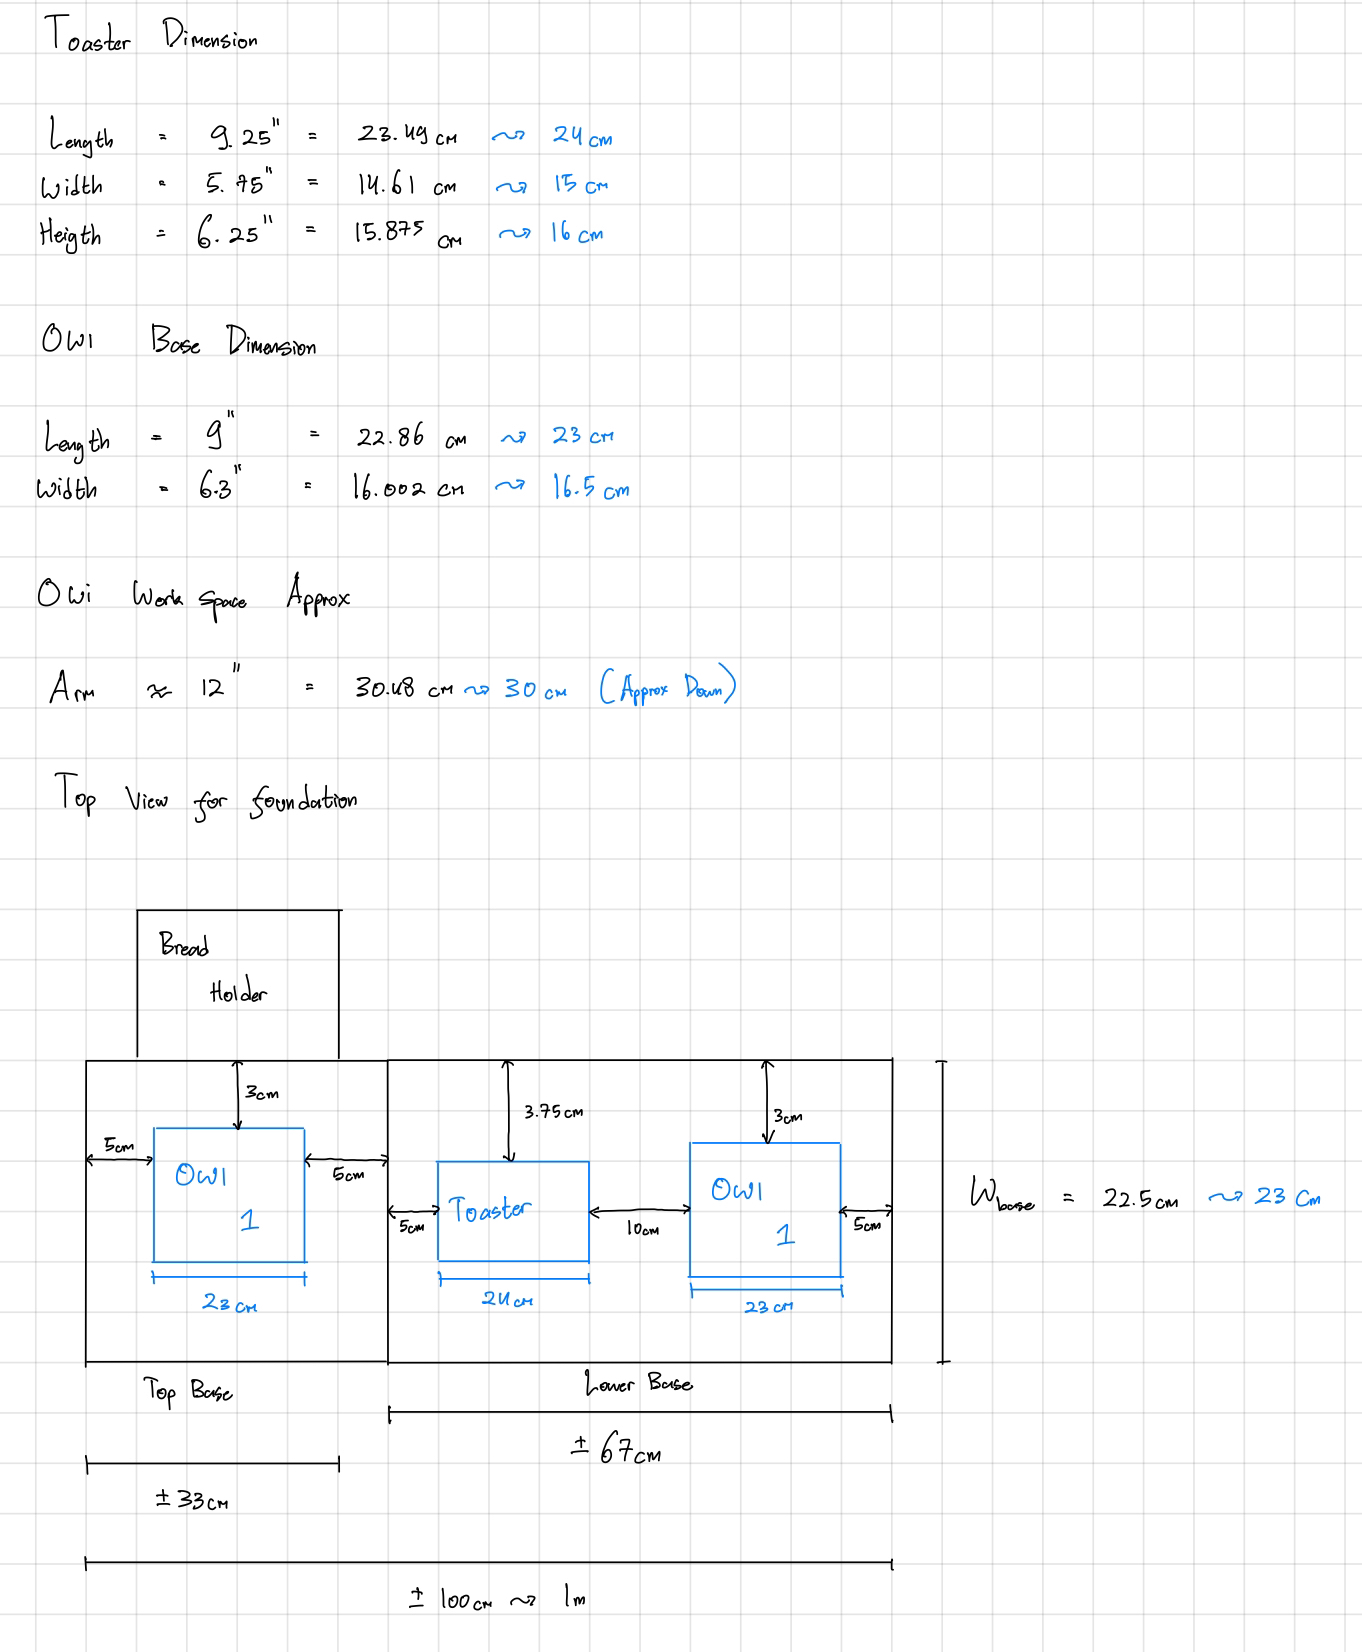 Toaster Dimension
Length = 9.25" = 23.49 cm ~> 24 cm
Width = 5.75" = 14.61 cm ~> 15 cm
Heigth = 6.25" = 15.875 cm ~> 16 cm
OWI Base Dimension
Length = 9" = 22.86 cm ~> 23 cm
Width = 6.3" = 16.002 cm ~> 16.5 cm
Owi Work space Approx
Arm ≈ 12" = 30.48 cm ~> 30 cm (Approx Down)
Top View for foundation
Bread
Holder
3cm
5cm
OWI
1
5cm
23 cm
3.75 cm
5cm
Toaster
10cm
24 cm
3cm
OWI
1
5cm
23 cm
Wbase = 22.5 cm ~> 23 Cm
Top Base
Lower Base
± 67cm
± 33cm
± 100cm ~> 1m